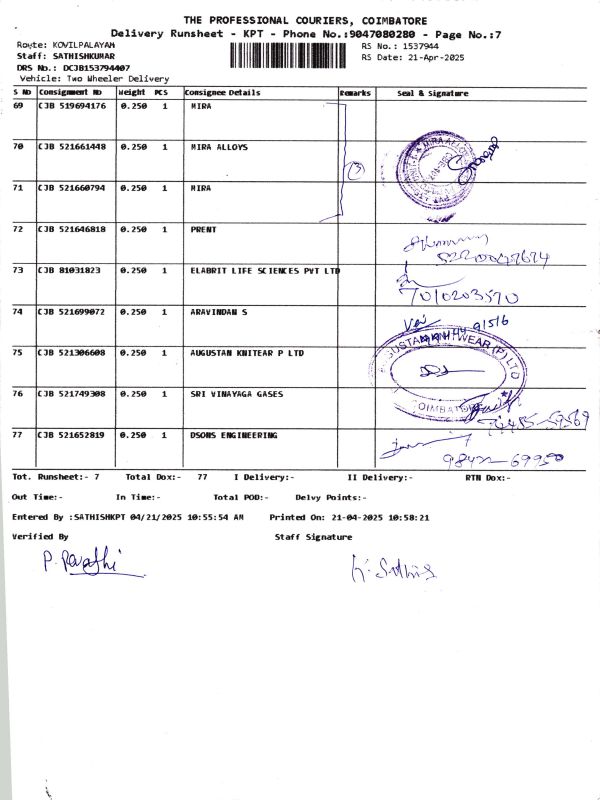 THE PROFESSIONAL COURIERS, COIMBATORE
Delivery Runsheet - KPT - Phone No.:9047080280 - Page No.:7
Route: KOVILPALAYAM RS No.: 1537944
Staff: SATHISHKUMAR RS Date: 21-Apr-2025
DRS No.: DCJB153794407
Vehicle: Two Wheeler Delivery
S No Consignment No Weight PCS Consignee Details Remarks Seal & Signature
69 CJB 519694176 0.250 1 MIRA
70 CJB 521661448 0.250 1 MIRA ALLOYS
3
71 CJB 521660794 0.250 1 MIRA
72 CJB 521646818 0.250 1 PRENT
73 CJB 81031823 0.250 1 ELABRIT LIFE SCIENCES PVT LTD
7010203570
74 CJB 521699072 0.250 1 ARAVINDAN S
75 CJB 521306608 0.250 1 AUGUSTAN KNITEAR P LTD
AUGUSTAN KNITWEAR (P) LTD
COIMBATORE
76 CJB 521749308 0.250 1 SRI VINAYAGA GASES
77 CJB 521652819 0.250 1 DSONS ENGINEERING
Tot. Runsheet:- 7 Total Dox:- 77 I Delivery:- II Delivery:- RTN Dox:-
Out Time:- In Time:- Total POD:- Delvy Points:-
Entered By :SATHISHKPT 04/21/2025 10:55:54 AM Printed On: 21-04-2025 10:58:21
Verified By Staff Signature
P. Revathi K. Sathis